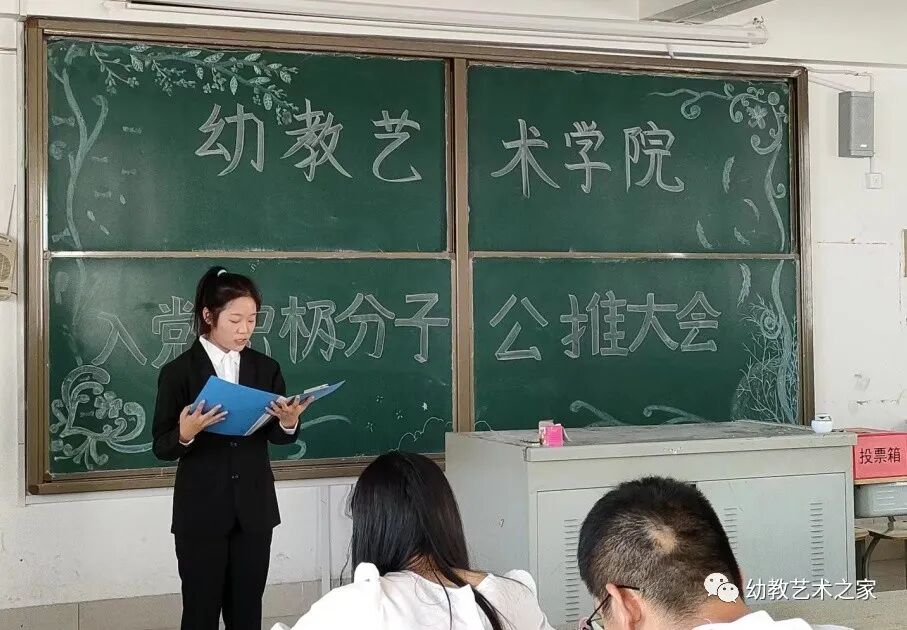 幼教艺术学院
入党积极分子公推大会
投票箱
幼教艺术之家